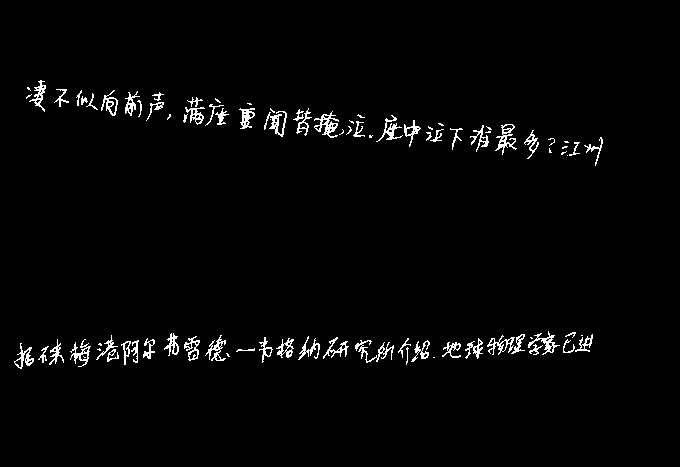 凄不似向前声,满座重闻皆掩泣.座中泣下谁最多?江州
据不来梅港阿尔弗雷德一韦格纳研究所介绍.地球物理学家已进